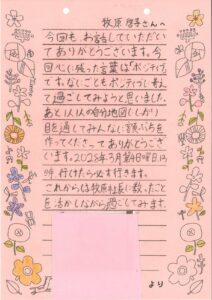 牧原 啓子さんへ
今回も お話していただい
てありがとうございます。今
回心に残った言葉はポジティブ
です。なにごともポジティブに考え
て過ごしてみようと思いました。
あと1人1人の自分地図(しかり
目を通してみんなに額ぶちを
作ってくださってありがとうござ
います。2028年3月第4日曜日13
時行けたら必ず行きます。
これからは牧原社長に教ったこと
を活かしながら過ごしてみます。
より